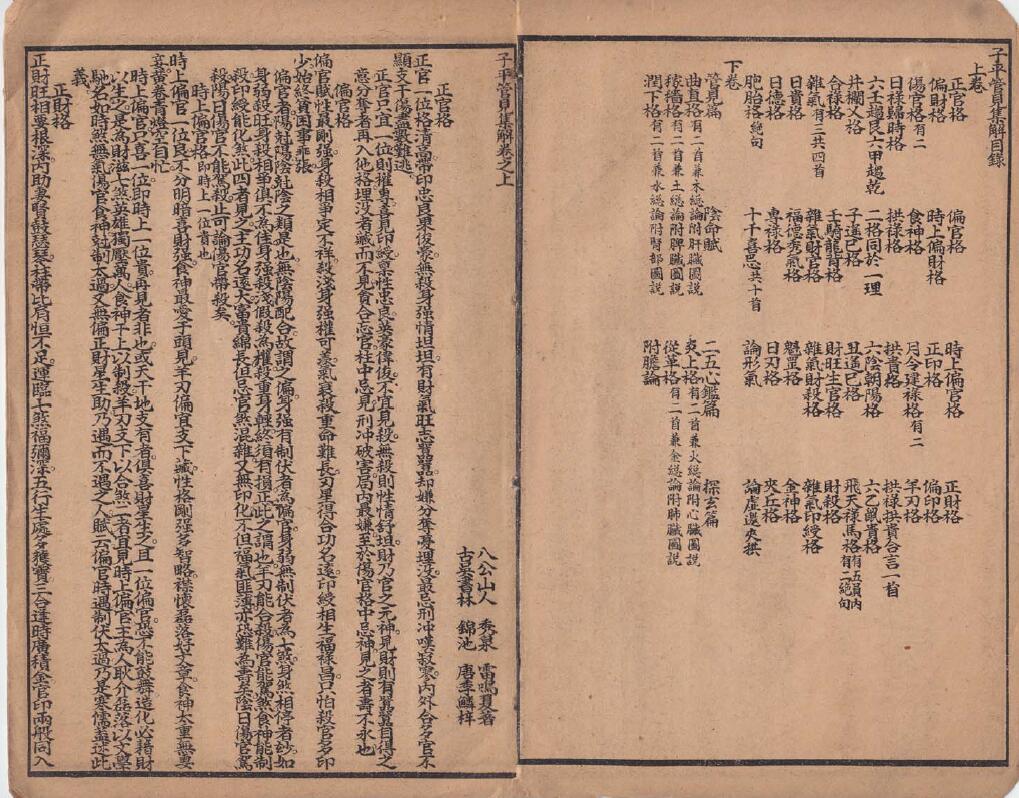 子平管見集解目錄
上卷
正官格
偏官格
時上偏官格
正財格
偏財格
時上偏財格
正印格
偏印格
傷官格有二
食神格
月令建祿格有二
羊刃格
日祿歸時格
拱祿格
拱貴格
拱祿拱貴合言一首
六壬趨艮六甲趨乾
二格同於一理
六陰朝陽格
六乙鼠貴格
井欄乂格
子遙巳格
丑遙巳格
飛天祿馬格有五員內有二絕句
合祿格
壬騎龍背格
財旺生官格
財殺格
雜氣有三共四首
雜氣財官格
雜氣財殺格
雜氣印綬格
日貴格
福德秀氣格
魁罡格
金神格
日德格
專祿格
日刃格
夾丘格
胞胎格絕句
十干喜忌共十首
論形氣
論虛邀夾拱
下卷
管見篇
陰命賦
二五心鑑篇
探玄篇
曲直格有一首兼木總論附肝臟圖説
炎上格有二首兼火總論附心臟圖説
稼穡格有一首兼土總論附脾臟圖説
從革格有二首兼金總論附肺臟圖説
潤下格有一首兼水總論附腎部圖説
附膽論
子平管見集解卷之上
八公山人 秀泉 雷鳴夏著
古吳書林 錦池 唐季鱗梓
正官格
正官一位格清高帶印忠良果俊豪無殺身强情坦坦有財氣旺志囂囂却嫌分奪夢埋沒最忌刑冲嘆寂寥內外合多官不
顯支干傷盡難逃
正官只宜一位則權尊喜見印綬稟性忠良英豪偉俊不宜見殺無殺則性情舒坦財乃官之元神見財則有囂囂自得之
意分奪者再入他格埋沒者藏而不見貪合忘官柱中忌見刑冲破害局內最嫌至於傷官格中忌神見之者壽不永也
偏官格
偏官賦性最剛强身殺相爭定不祥殺淺身强權可羨氣衰殺重命難長刃星得合功名遂印綬相生福祿昌只怕殺官多印
少始終貧困事乖張
偏官者陽尅陽陰尅陰之類是也無陰陽配合故謂之偏身强有制伏者為偏官身弱無制伏者為七煞身煞相停者妙如
身弱殺旺身殺相爭俱不為佳身强殺淺假殺為權殺重身輕終須有損正此之謂也羊刃能合殺傷官能駕煞食神能制
殺印綬能化煞此四者見之主功名遂大富貴綿長但忌官煞混雜又無印化不但福氣匪薄亦恐難為壽矣陰日傷官駕
殺陽日傷官不能駕殺止可論傷官帶殺矣
時上偏官格即時上一位貴也
時上偏官一位良不分明暗喜財强食神最愛于頭見羊刃偏宜支下藏性格剛强多智略襟懷磊落好文章食神太重無妻
妾黃卷青燈空自忙
時上偏官只喜一位即時上一位貴再見者非也或天干地支有者俱喜財星生之且一位偏官恐不能鼓舞造化必藉財
以生之是為財滋七煞英雄獨壓萬人食神干上以制殺羊刃支下以合煞二者宜見時上偏官主為人耿介磊落以文學
馳名如時煞無氣傷官食神尅制太過又無偏正財星生助乃遇而不遇之人賦云偏官時遇制伏太過乃是寒儒蓋述此
義
正財格
正財旺相要根深內助妻賢鼓瑟琴柱帶比肩恒不足運臨七煞福彌深五行生處多獲寶三合逢時廣積金官印兩般同入